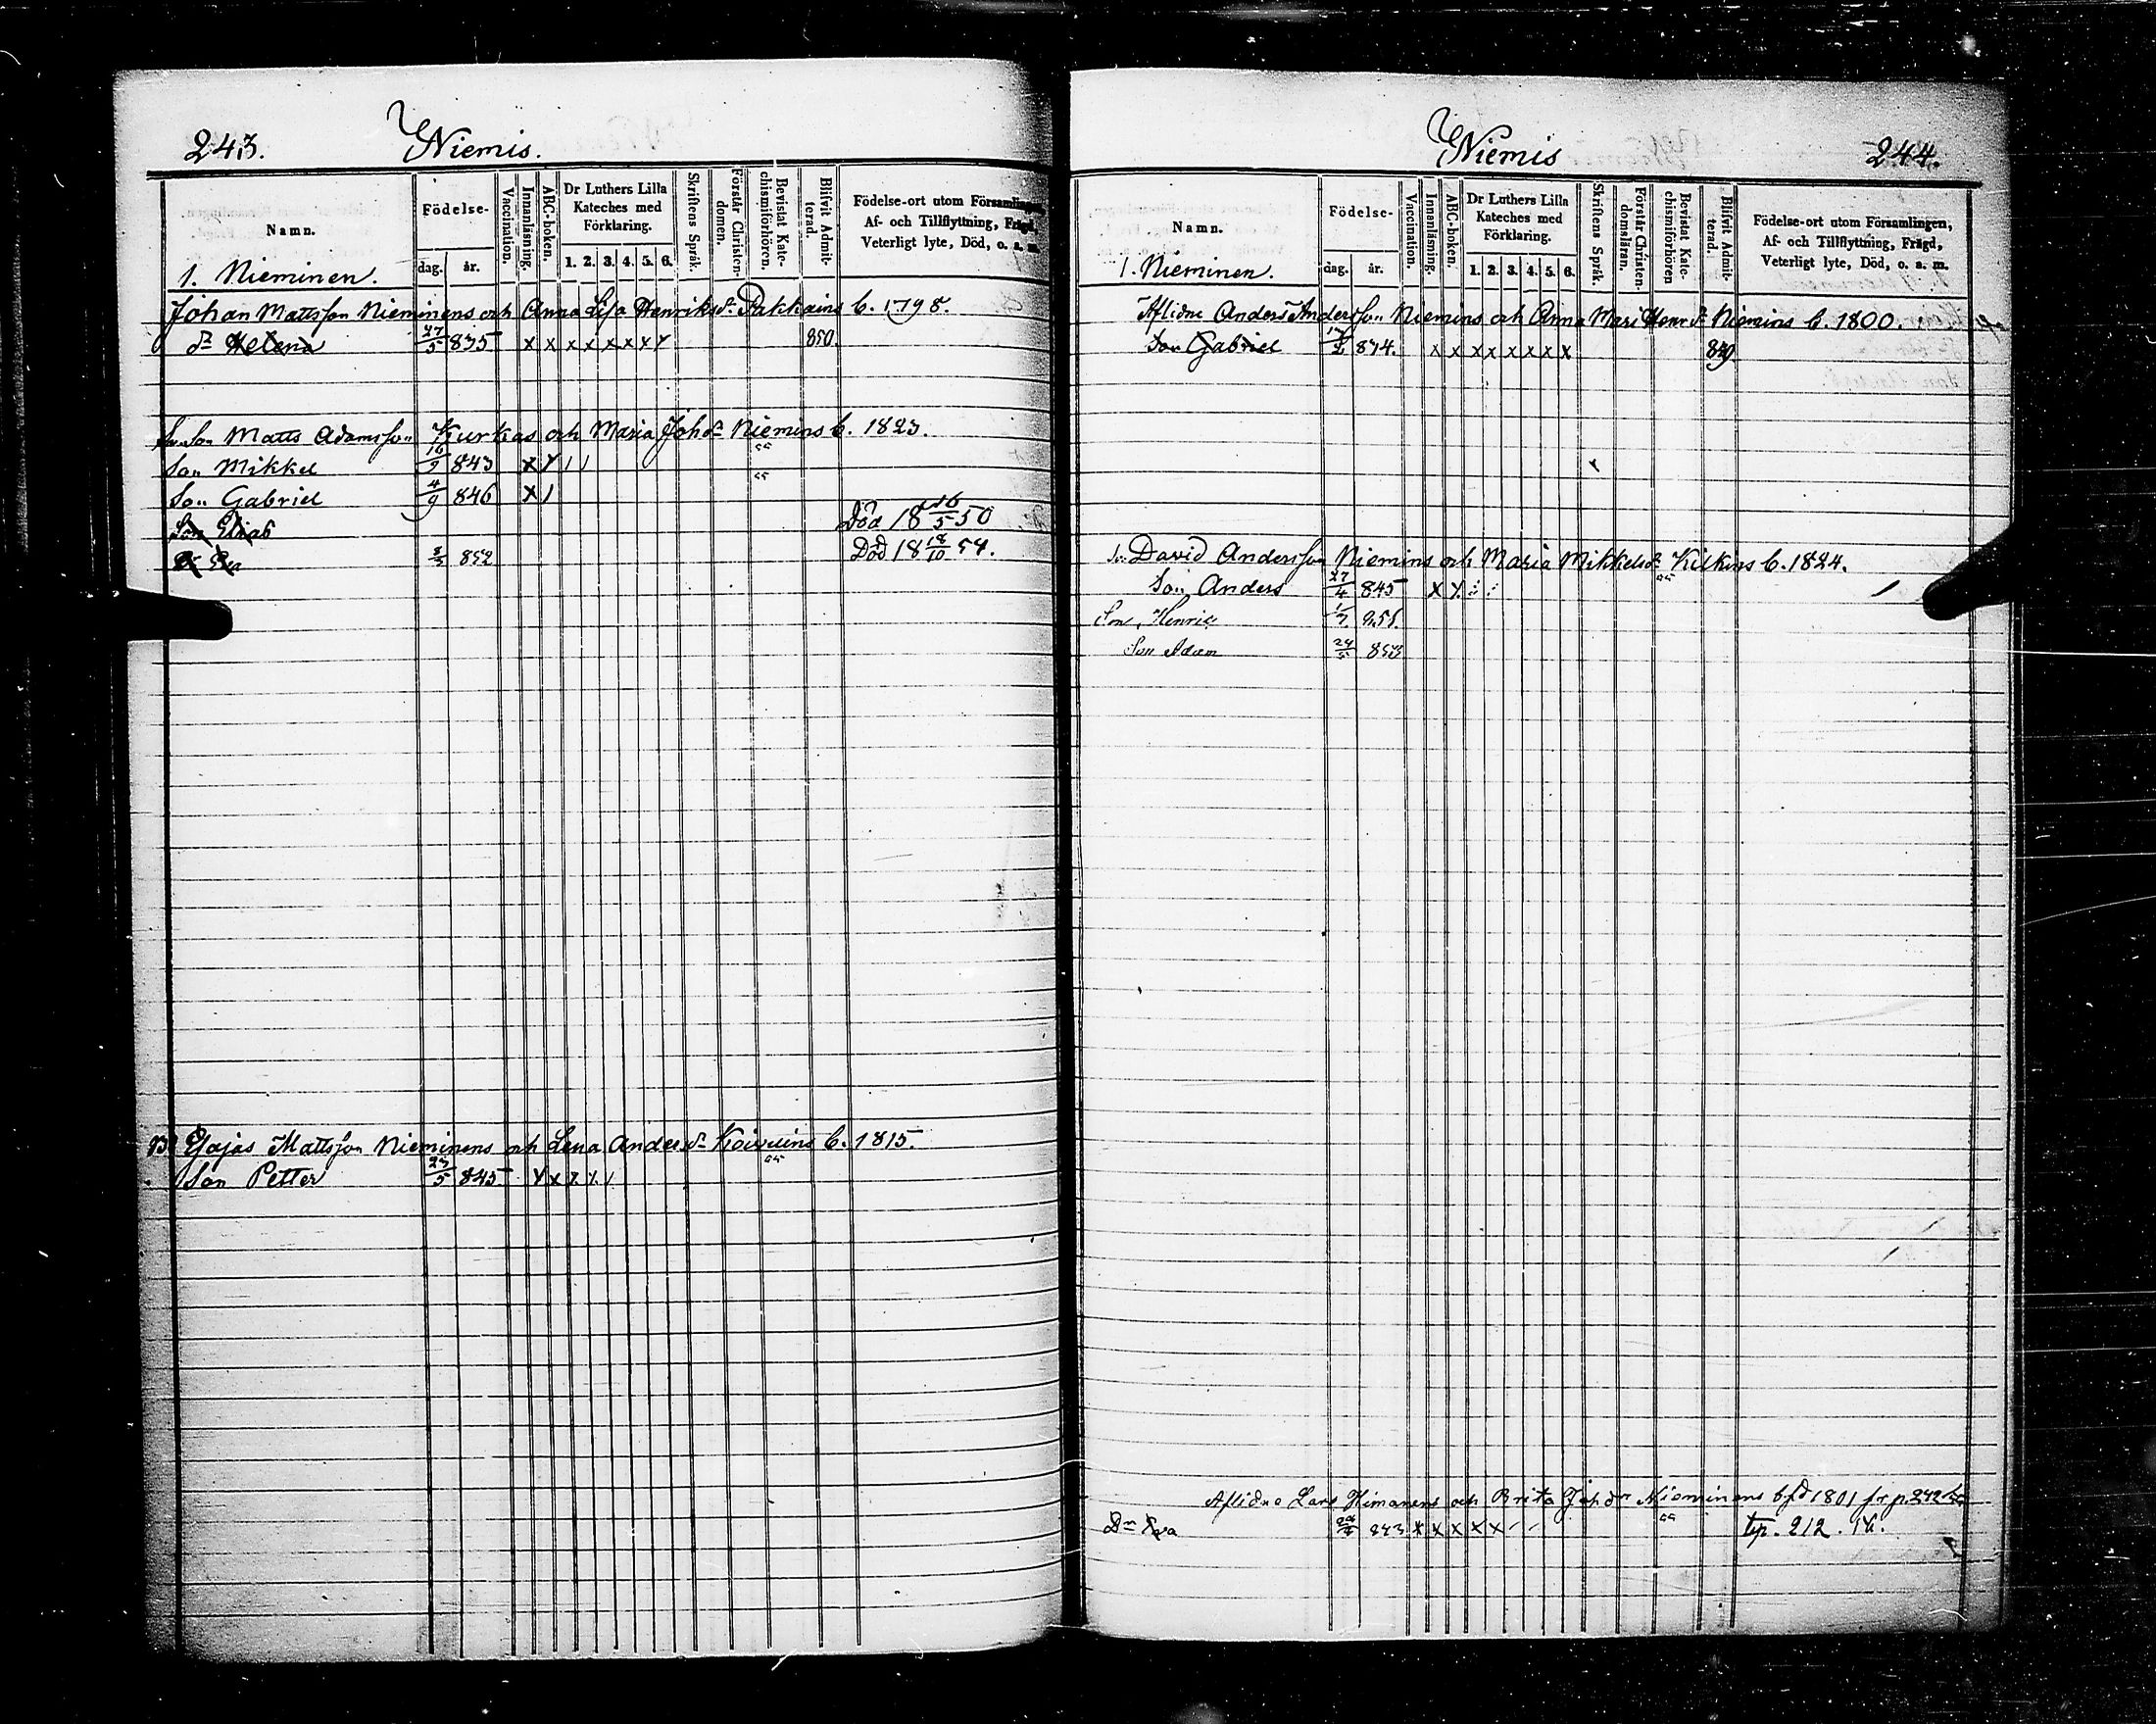 243. Niemis.
Namn.
Födelse-
dag. år.
Vaccination.
Innanläsning.
ABC-boken.
Dr Luthers Lilla Kateches med Förklaring.
1. 2. 3. 4. 5. 6.
Skriftens Språk.
Förstår Christendomen.
Bevistat Katechismiförhören.
Blifvit Admitterad.
Födelse-ort utom Församlingen,
Af- och Tillflyttning, Frägd,
Veterligt lyte, Död, o. s. m.
1. Nieminen.
Johan Mattsson Nieminens och Anna Lisa Henriksdr Pakkains b. 1798.
dr Helena 27/5 835 x x x x x x x x 850.
Matts Adamsson Kurkas och Maria Johdr Niemins b. 1823.
Son Mikkel 16/9 843 x
Son Gabriel 4/9 846 x
Son Elias Död 18 16/5 50
Dr Eva 852 Död 18 18/10 54.
Esajas Mattsson Nieminens och Lena Andersdr b. 1815.
Son Petter 23/5 845
Niemis 244.
Namn.
Födelse-
dag. år.
Vaccination.
Innanläsning.
ABC-boken.
Dr Luthers Lilla Kateches med Förklaring.
1. 2. 3. 4. 5. 6.
Skriftens Språk.
Förstår Christendomsläran.
Bevistat Katechismiförhören
Blifvit Admitterad.
Födelse-ort utom Församlingen,
Af- och Tillflyttning, Frägd,
Veterligt lyte, Död, o. s. m.
1. Nieminen.
Aflidne Anders Andersson Niemins och Anna Mari Henrdr Niemins b. 1800.
Son Gabriel 834. x x x x x x x x
David Andersson Niemins och Maria Mikkelsdr Kilkins b. 1824.
Son Anders 27/4 845 x
Son Henric
Son Adam 853
Aflidne Lars Himanens och Brita Johdr Nieminens 1801 fr p. 242
Dr Eva 843 x x x x x tp. 212.